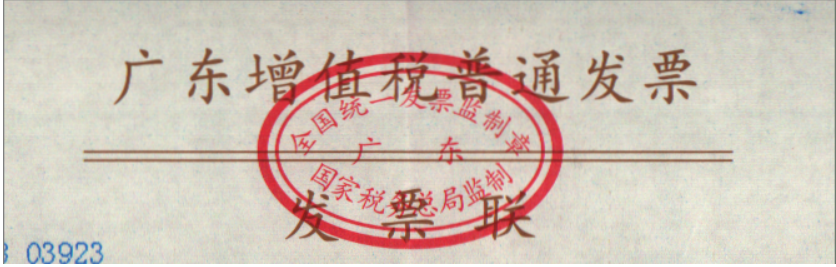 广东增值税普通发票
全国统一发票监制章
广东
国家税务总局监制
发票联
03923